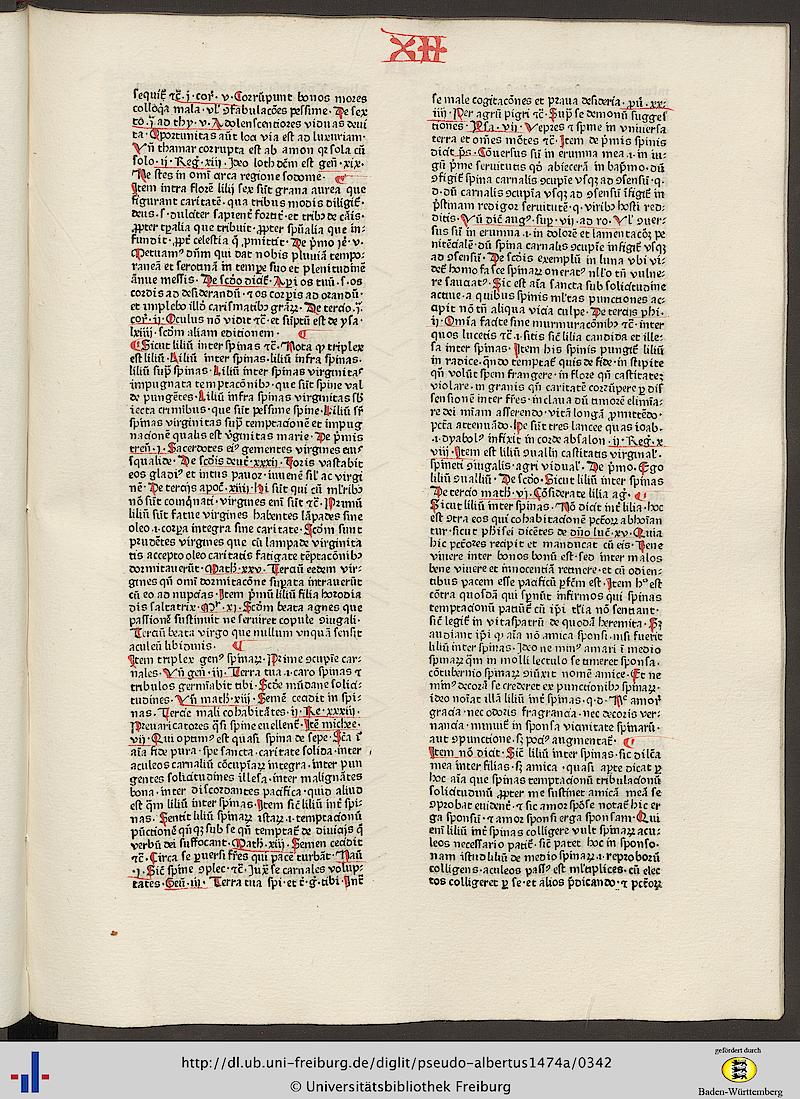 XII
sequit̄ ⁊c̄. j. cor̄. v. Corrūpunt bonos mores
colloq̄a mala. vl̓ ꝯfabulacōes pessime. De sex
to. j. ad thy. v. Adolenscentiores viduas deui
ta. Oportunitas aūt loci via est ad luxuriam.
Vn̄ thamar corrupta est ab amon qr sola cū
solo. ij. Reg̓. xiij. Ideo loth dc̄m est gen̄. xix.
Ne stes in om̄i circa regione sodome.
Item intra florē lilij sex sūt grana aurea que
figurant caritatē. qua tribus modis diligit̄
deus. s. dulciter sapient̄ fortit̄. et tribꝰ de cāis.
ꝓpter tꝑalia que tribuit. ꝓpter spūalia que in
fundit. ꝓpt̄ celestia q̄ ꝓmittit. De p̄mo ie̓. v.
Metuam̓ dūm qui dat nobis pluuiā tempo
raneā et serotinā in tempe suo et plenitudinē
ānue messis. De scdō dicit̄. Aꝑi os tuū. s. os
cordis ad desiderandū. ⁊ os corꝑis ad orandū.
et implebo illd̓ carismatibꝰ grāꝝ. De tercio. j.
cor̄. ij. Oculus nō vidit ⁊c̄. et sūptū est de ysa.
lxiiij. scdm aliam editionem.
Sicut liliū inter spinas ⁊c̄. Nota ꝙ triplex
est liliū. Liliū inter spinas. liliū infra spinas.
liliū sup̄ spinas. Liliū inter spinas virginitas
impugnata temptacōnibꝰ. que sūt spine val
de pungētes. Liliū infra spinas virginitas sb̄
iecta crimībus. que sūt pessime spine. Liliū sr̄
spinas virginitas sup̄ temptacionē et impug
nacionē qualis est v̓ginitas marie. De p̄mis
tren̄. j. Sacerdotes ei̓ gementes virgines eius
squalide. De scdis deut̄. xxxij. Foris vastabit
eos gladi̓ et intus pauor. iuuenē sil̓ ac virgi
nē. De tercijs apoc̄. xiiij. Hi sūt qui cū ml̓ribꝰ
nō sūt coinquati. virgines eni̅ sūt ⁊c̄. Primū
liliū sūt fatue virgines habentes lāpades sine
oleo. i. corꝑa integra sine caritate. Scdm sunt
prudētes virgines que cū lampade virginita
tis accepto oleo caritatis fatigate tēptacōnibꝰ
dormitauerūt. Math̄. xxv. Terciū eedem vir
gines qn̄ om̄i dormitacōne suꝑata intrauerūt
cū eo ad nupcias. Item p̄mū liliū filia herodia
dis saltatrix. Mr̄. xj. Scdm beata agnes que
passionē sustinuit ne seruiret copule ꝯiugali.
Terciū beata virgo que nullum vnquā sensit
aculeū libidinis.
Item triplex gen̓ spinaꝝ. Prime ꝯcupīe car
nales. Vn̄ gen̄. iij. Terra tua. i. caro spinas ⁊
tribulos germīabit tibi. Scde mūdane solici
tudines. Vn̄ math̄. xiij. Semē cecidit in spi
nas. Tercie mali cohabitātes. ij. Re. xxxiij.
Preuaricatores q̄si spine euellent̄. Itē michee.
vij. Qui optim̓ est quasi spina de sepe. Scā ī
aīa fide pura. spe sancta. caritate solida. inter
aculeos carnaliū cōcupīaꝝ integra. inter pun
gentes solicitudines illesa. inter malignātes
bona. inter discordantes pacifica. quid aliud
est qm̄ liliū inter spinas. Item sic̄ liliū int̄ spi
nas. Sentit liliū spinaꝝ istaꝝ. i. temptacionū
pūctionē qn̄qꝫ sub se qn̄ temptat̄ de diuicijs q̄
verbū dei suffocant. Math̄. xiij. Semen cecidit
⁊c̄. Circa se ꝑuersi fr̄es qui pacē turbāt. Naū
. j. Sic̄ spine ꝯplec. ⁊c̄. Juxᷓ se carnales volup
tates. Gen̄. iij. Terra tua spi. et t̄. g̓. tibi. Int̄
se male cogitacōnes et praua desideria. ꝓū. xx
iiij. Per agrū pigri ⁊c̄. Sup̄ se demonū sugges
tiones. Ysa. vij. Vepres ⁊ spine in vniuersa
terra et om̄es mōtes ⁊c̄. Item de p̄mis spinis
dicit ps̄. Cōuersus sū in erumna mea. i. in iu
gū p̄me seruitutis qd̓ abiecerā in bap̄mo. dū
ꝯfigit̄ spina carnalis ꝯcupīe vsqꝫ ad ꝯsensū. q.
d. dū carnalis ꝯcupīa vsqꝫ ad ꝯsensū īfigit̄ in
p̄stinam redigor seruitutē. q. viribꝰ hosti red
ditis. Vn̄ dic̄ aug̓. sup. vij. ad ro. Vl̓ ꝯuer
sus sū in erumna. i. in dolorē et lamentacōꝫ pe
nitēcialē. dū spina carnalis ꝯcupīe infigit̄ vsqꝫ
ad ꝯsensū. De scdis exemplū in luna vbi vi
det̄ homo fasce spinaꝝ onerat̓ nll̓o tn̄ vulne
re sauciat̓. Sic est aīa sancta sub solicitudine
actiue. a quibus spinis ml̓tas punctiones ac
cipit nō tn̄ aliqua vicia culpe. De tercijs phi.
ij. Omīa facite sine murmuracōnibꝰ ⁊c̄. inter
quos lucetis ⁊c̄. i. sitis sic̄ lilia candida et ille
sa inter spinas. Item his spinis pungit̄ liliū
in radice. qn̄do temptat̄ quis de fide. in stipite
qn̄ volūt spem frangere. in flore qn̄ castitateꝫ
violare. in granis qn̄ caritatē corrūpere ꝑ dis
sensionē inter fr̄es. in claua dū timorē elimīa
re dei nīam asserendo. vitā longā ꝓmittēdo.
pctā attenuādo. He sūt tres lancee quas ioab.
.i. dyabol̓ infixit in corde absalon. ij. Reg̓. x
viij. Item est liliū ꝯuallū castitatis virginal̓.
spineti ꝯiugalis. agri vidual̓. De p̄mo. Ego
liliū ꝯualliū. De scdo. Sicut liliū inter spinas
De tercio math̄. vj. Cōsiderate lilia ag̓.
Sicut liliū inter spinas. Nō dicit int̄ lilia. hoc
est ꝯtra eos qui cohabitacionē pctōꝝ abhoīan
tur. sicut phisei dicētes de dn̄o luc̄. xv. Quia
hic pctōres recipit et manducat cū eis. Bene
viuere inter bonos bonū est. sed inter malos
bene viuere et innocentiā retinere. et cū odien
tibus pacem esse pacificū ꝑfc̄m est. Item h̓ est
cōtra quosdā qui spnūt infirmos qui spinas
temptacionū patiūt̄ cū ip̄i tl̓ia nō sentiant.
sic̄ legit̄ in vitaspatrū de quodā heremita. Sꝫ
audiant ip̄i ꝙ aīa nō amica sponsi. nisi fuerit
liliū inter spinas. Ideo ne min̓ amari ī medio
spinaꝝ qm̄ in molli lectulo se timeret sponsa.
cōtubernio spinaꝝ ꝯiūxit nomē amice. Et ne
min̓ decorā se crederet ex punctionibꝰ spinaꝝ.
ideo notat illā liliū int̄ spinas. q. d. Nec amor̄
gracia. nec odoris fragrancia. nec decoris ver
nancia. minuit̄ in sponsa vicinitate spinarū.
aut ꝯpunctione. sꝫ poci̓ augmentat̄.
Item nō dicit. Sic̄ liliū inter spinas. sic dilc̄a
mea inter filias. sꝫ amica. quasi aꝑte dicat ꝑ
hoc aīa que spinas temptacionū tribulacionū
solicitudinū. ꝓpter me sustinet amicā meā se
ꝯprobat euident̄. ⁊ sic amor spōse notat̄ hic er
ga sponsū. ⁊ amor sponsi erga sponsam. Qui
eni̅ liliū int̄ spinas colligere vult spinaꝝ acu
leos necessario patit̄. sic̄ patet hoc in sponso.
nam istud liliū de medio spinaꝝ. i. reproborū
colligens. aculeos pass̓ est ml̓tiplices. cū elec
tos colligeret ꝑ se. et alios p̄dicando. ⁊ pctōꝝ
http://dl.ub.uni-freiburg.de/diglit/pseudo-albertus1474a/0342
© Universitätsbibliothek Freiburg
gefördert durch
Baden-Württemberg